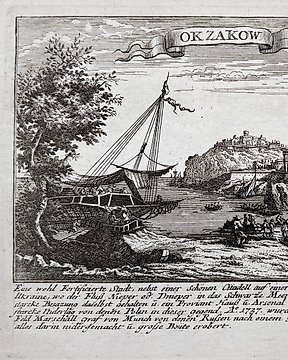 OKZAKOW
Eine wohl Fortificierte Stadt, nebst einer schönen Citadell auf einer
Ukraine, wo der Fluß Nieper od. Dnieper in das Schwarze Meer
starcke Besazung daselbst gehalten u. ein Proviant Hauß u. Arsenal
starcke Niderlag von denen Polen in dieser gegend, Aº. 1737. wurde
Feld Marschall Grafen von Münch von denen Rußen nach einem
alles darin nidergemacht u. große Beute erobert.